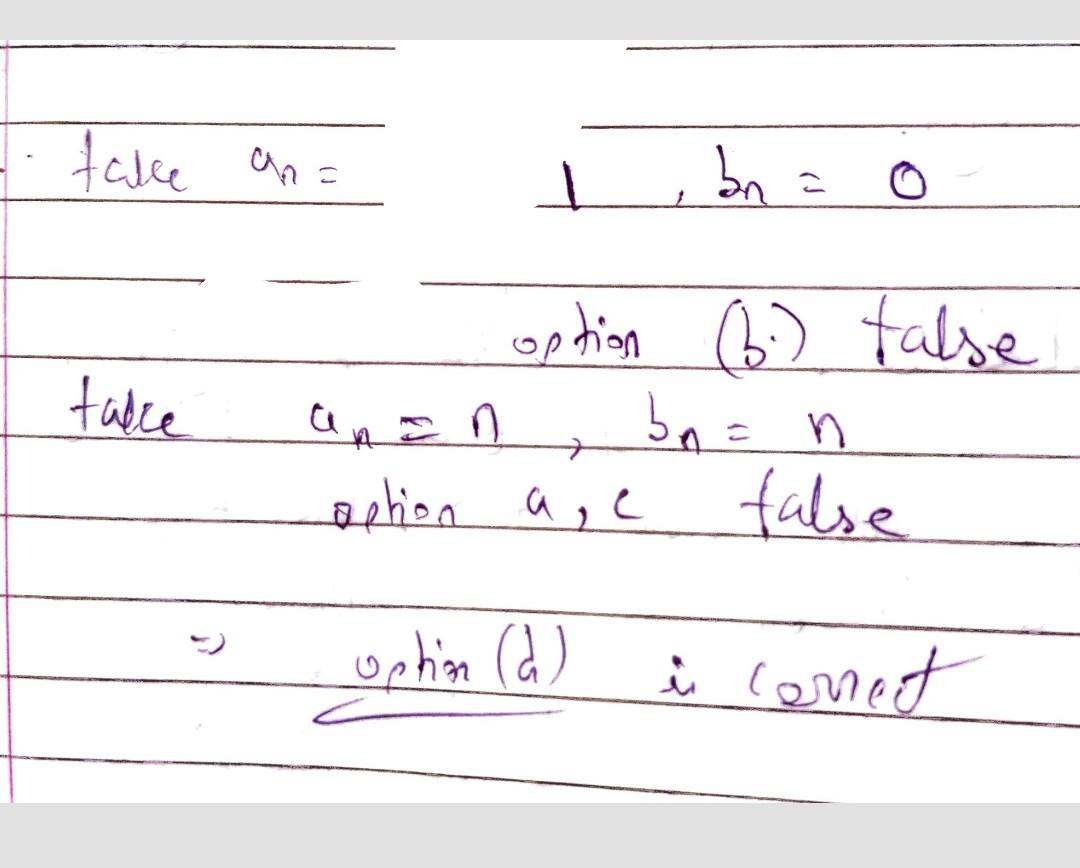 take an = 1 , bn = 0
option (b.) false
take an = n , bn = n
option a, c false
⇒ option (d) is correct